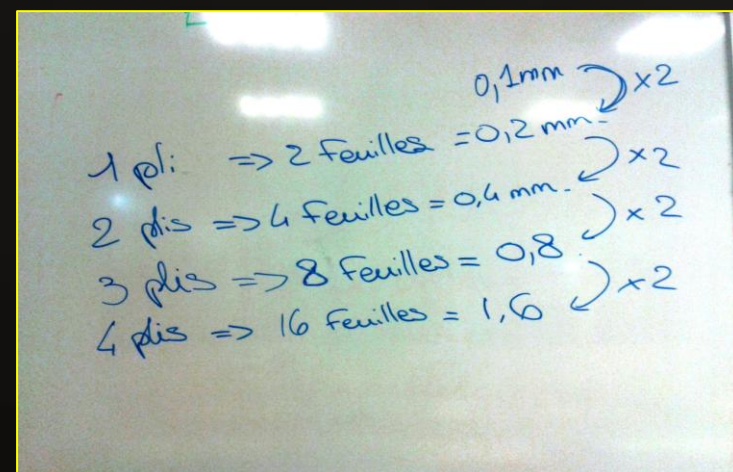 0,1mm ×2
1 pli => 2 Feuilles = 0,2 mm. ×2
2 plis => 4 Feuilles = 0,4 mm. ×2
3 plis => 8 Feuilles = 0,8. ×2
4 plis => 16 Feuilles = 1,6